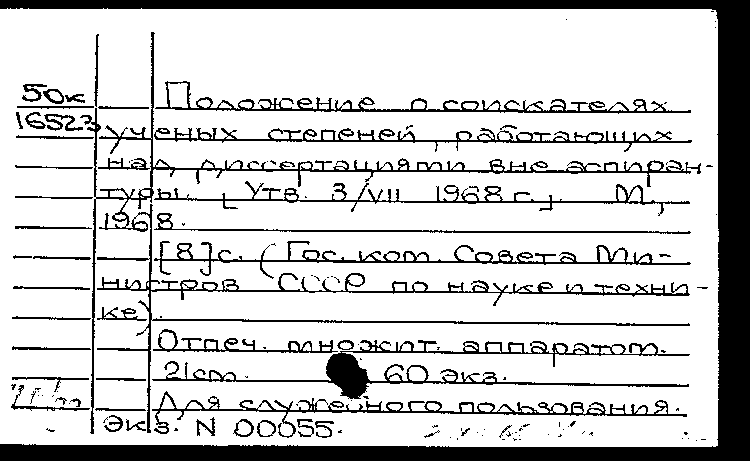 50к
16523
Положение о соискателях
ученых степеней, работающих
над диссертациями вне аспиран-
туры. [Утв. 3/VII 1968 г.] М.,
1968.
[8] с. (Гос. ком. Совета Ми-
нистров СССР по науке и техни-
ке)
Отпеч. множит. аппаратом.
21 cm. 60 экз.
Для служебного пользования.
Экз. N 00055.